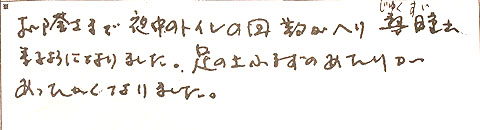 じゅくすい
おかげさまで夜中のトイレの回数がへり 熟睡出
来るようになりました。足の土ふまずのあたりが
あったかくなりました。